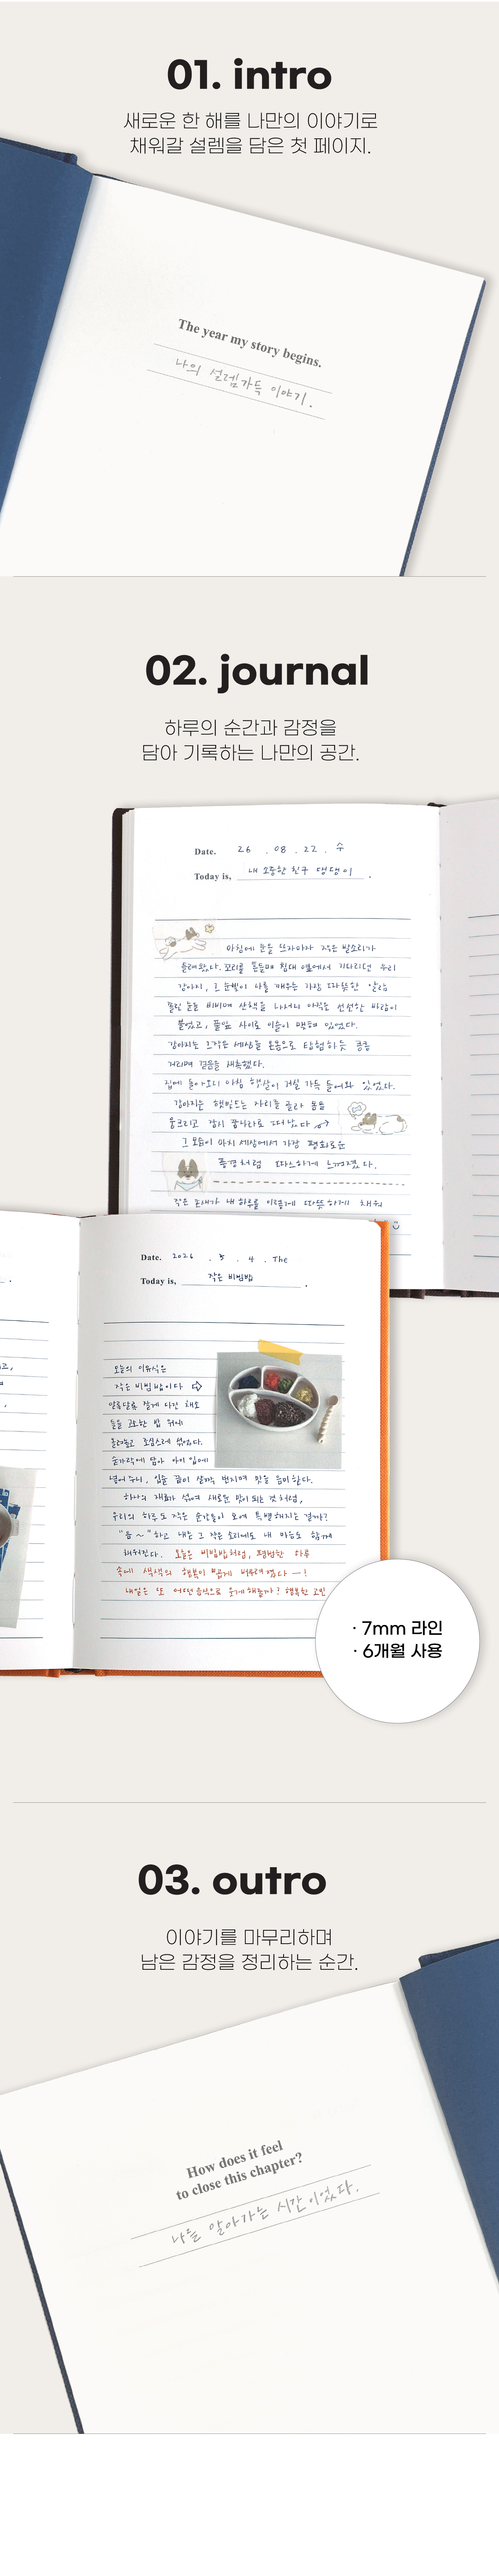 01. intro
새로운 한 해를 나만의 이야기로
채워갈 설렘을 담은 첫 페이지.
The year my story begins.
나의 설렘가득 이야기.
02. journal
하루의 순간과 감정을
담아 기록하는 나만의 공간.
Date. 26 . 08 . 22 . 수
Today is, 내 소중한 친구 댕댕이 .
아침에 눈을 뜨자마자 작은 발소리가
들려왔다. 꼬리를 흔들며 침대 옆에서 기다리던 우리
강아지, 그 눈빛이 나를 깨우는 가장 따뜻한 알람
졸린 눈을 비비며 산책을 나서니 아직은 선선한 바람이
불었고, 풀잎 사이로 이슬이 맺혀 있었다.
강아지는 그 작은 세상을 온몸으로 탐험하듯 킁킁
거리며 걸음을 재촉했다.
집에 돌아오니 아침 햇살이 거실 가득 들어와 있었다.
강아지는 햇빛드는 자리를 골라 몸을
웅크리고 잠시 꿈나라로 떠났다
그 모습이 마치 세상에서 가장 평화로운
풍경처럼 따스하게 느껴졌다.
작은 존재가 내 하루를 이렇게 따뜻하게 채워
Date. 2026 . 5 . 4 . The
Today is, 작은 비빔밥 .
오늘의 이유식은
작은 비빔밥이다
알록달록 잘게 다진 채소
들을 고운 밥 위에
올려놓고 조심스레 섞었다.
숟가락에 담아 아이 입에
넣어주니, 입술 끝이 살짝 번지며 맛을 음미한다.
하나의 재료가 섞여 새로운 맛이 되는 것처럼,
우리의 하루도 작은 순간들이 모여 특별해지는 걸까?
"음~"하고 내는 그 작은 소리에도 내 마음도 함께
채워진다. 오늘은 비빔밥처럼, 평범한 하루
속에 색색의 행복이 곱게 버무려졌다 —!
내일은 또 어떤 음식으로 웃게 해줄까? 행복한 고민
· 7mm 라인
· 6개월 사용
03. outro
이야기를 마무리하며
남은 감정을 정리하는 순간.
How does it feel
to close this chapter?
나를 알아가는 시간이었다.